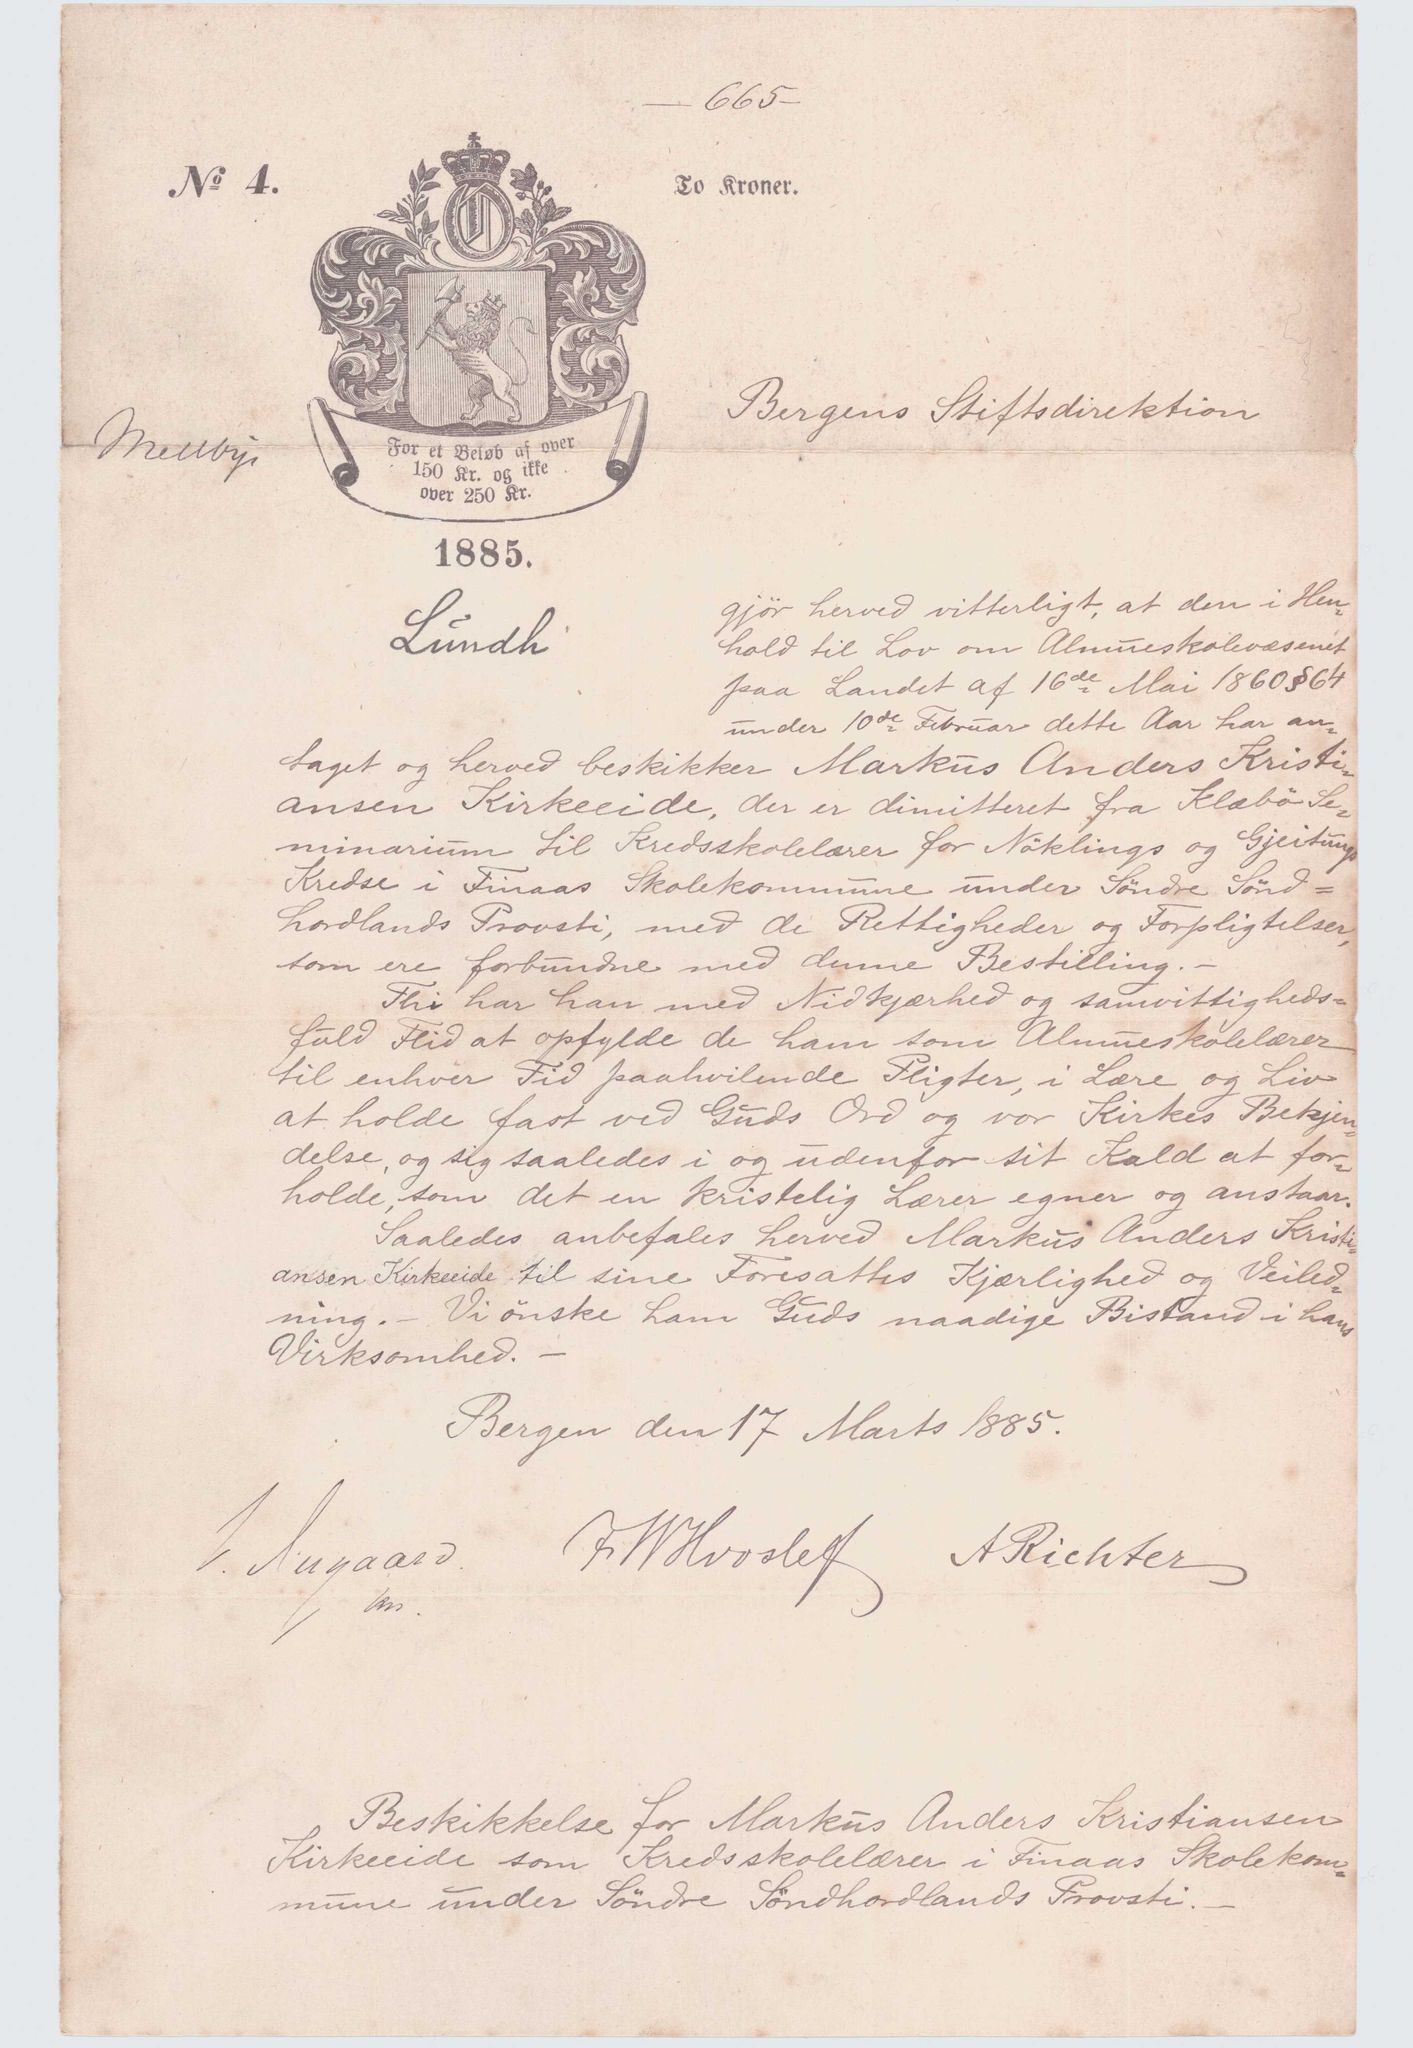 — 665 —
No 4.
To Kroner.
O
Bergens Stiftsdirektion
For et Beløb af over
150 Kr. og ikke
over 250 Kr.
1885.
Lundh
gjör herved vitterligt, at den i Hen-
hold til Lov om Almueskolevæsenet
paa Landet af 16de Mai 1860 § 64
under 10de Februar dette Aar har an-
taget og herved beskikker Markus Anders Kristi-
ansen Kirkeeide, der er dimitteret fra Klæbö Se-
minarium til Kredsskolelærer for Nöklings og Gjeitungs
Kredse i Finaas Skolekommune under Söndre Sönd=
hordlands Provsti, med de Rettigheder og Forpligtelser,
som ere forbundne med denne Bestilling. —
Thi har han med Nidkjærhed og samvittigheds=
fuld Flid at opfylde de ham som Almueskolelærer
til enhver Tid paahvilende Pligter, i Lære og Liv
at holde fast ved Guds Ord og vor Kirkes Bekjen-
delse, og sig saaledes i og udenfor sit Kald at for-
holde, som det en kristelig Lærer egner og anstaar.
Saaledes anbefales herved Markus Anders Kristi-
ansen Kirkeeide til sine Foresattes Kjærlighed og Veiled-
ning. — Vi önske ham Guds naadige Bistand i hans
Virksomhed. —
Bergen den 17 Marts 1885.
FW Hvoslef A Richter
Beskikkelse for Markus Anders Kristiansen
Kirkeeide som Kredsskolelærer i Finaas Skolekom-
mune under Söndre Söndhordlands Provsti. —